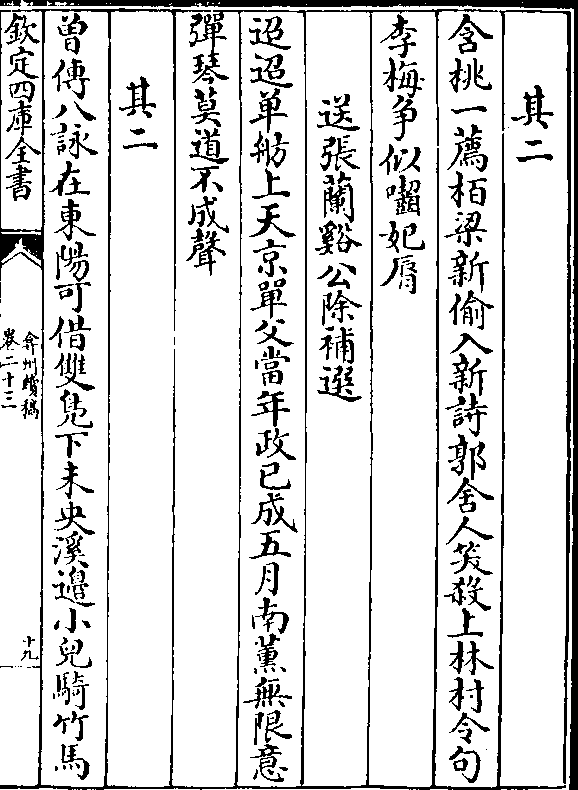 其二
含桃一薦栢梁新偷入新詩郭舍人笑殺上林村令句
李梅争似囓妃脣
送張蘭谿公除補選
迢迢单舫上天京單父當年政已成五月南薰無限意
彈琴莫道不成聲
其二
曽傳八詠在東陽可借雙凫下未央溪邉小兒騎竹馬
欽定四庫全書
弇州續稿
卷二十三
十九